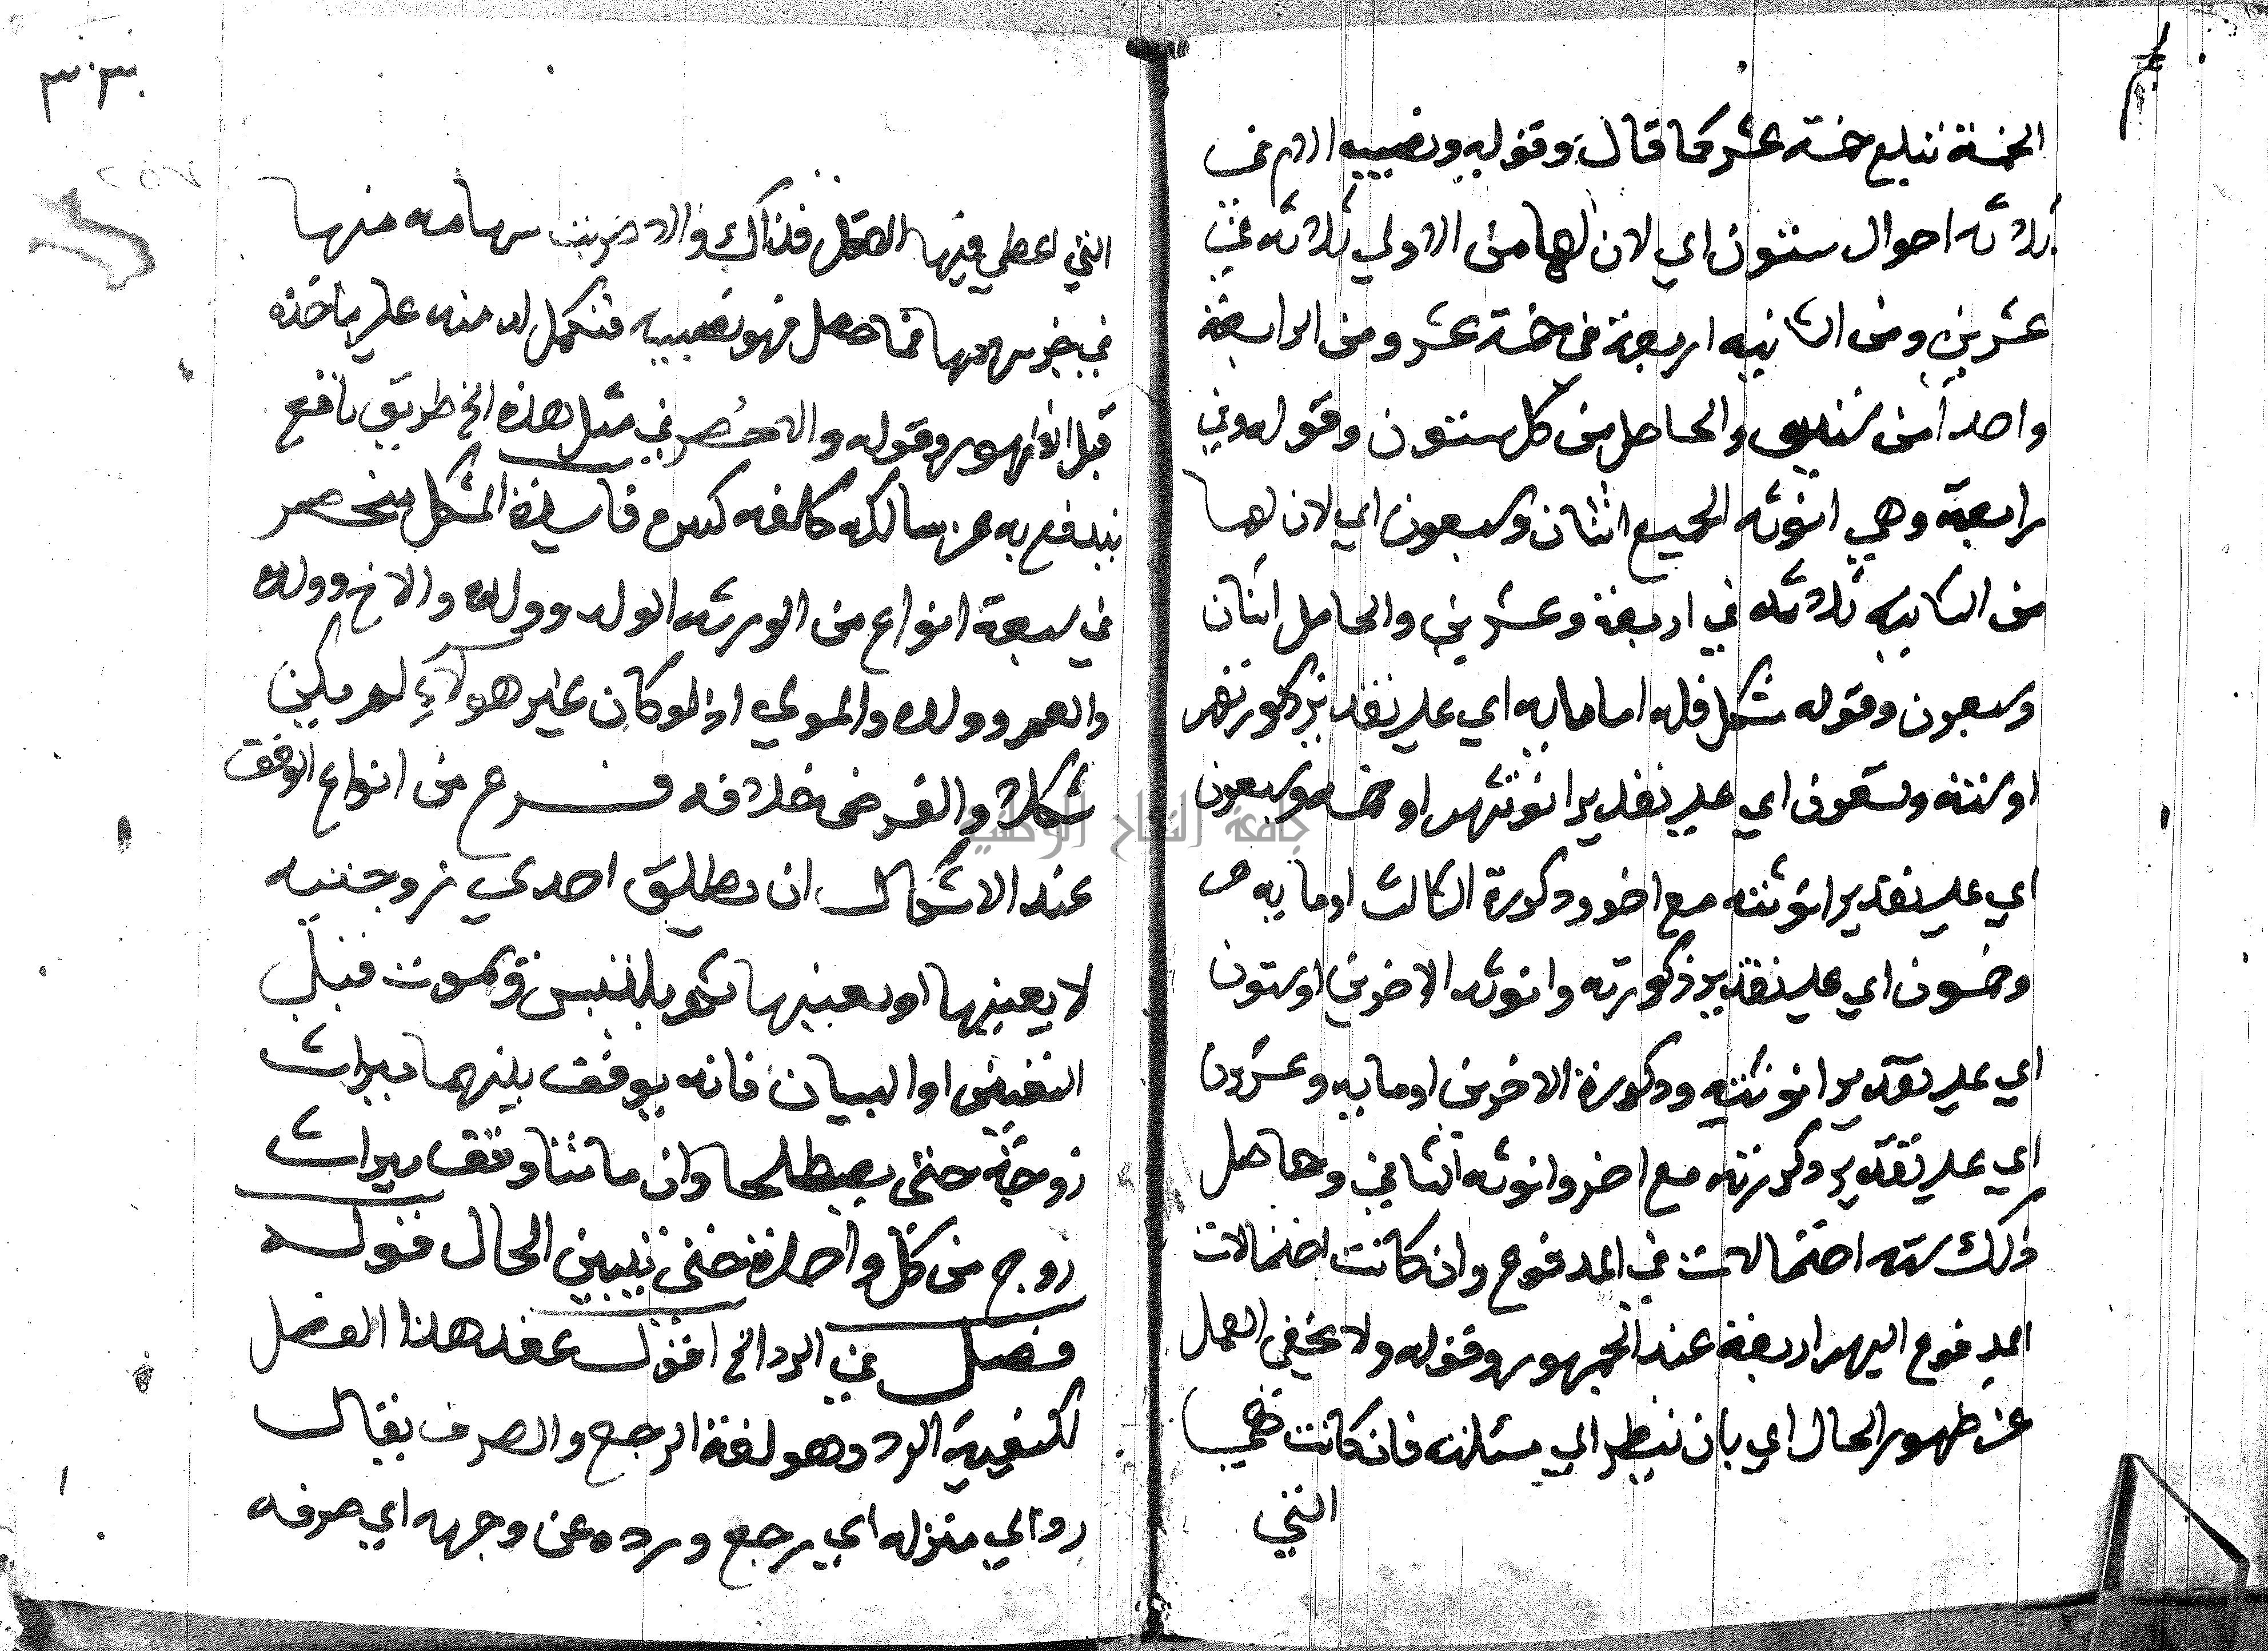 الخمسة تبلغ خمسة عشر كما قال وقوله ونصيبه الام في
ثلاثه احوال ستون اي لان لها من الاولي ثلاثه في
عشرين ومن الثانيه اربعة في خمسة عشر ومن الرابعة
واحدا من ستين والحاصل من كل ستون وقوله وفي
رابعة وهي انوثه الجميع اثنان وسبعون اي لان لها
من الثانيه ثلاثه في اربعة وعشرين والحاصل اثنان
وسبعون وقوله شكل فله اما مايه اي علي تقدير ذكورتهم
او ستة وتسعون اي علي تقدير انوثتهم او خمسه وسبعون
اي علي تقدير انوثته مع اخر وذكورة الثالث او مايه
وخمسون اي علي تقدير ذكورته وانوثه الاخرين او ستون
اي علي تقدير انوثته وذكورة الاخرين او مايه وعشرون
اي علي تقدير ذكورته مع اخر وانوثه الثاني وحاصل
ذلك سته احتمالات في المدفوع وان كانت احتمالات
المدفوع اليهم اربعة عند الجمهور وقوله ولا يخفي العمل
عند ظهور الحال اي بان ينظر الي مسئلته فان كانت هي
التي
٣٠٣
التي اعطي فيها الاقل فذاك والا ضربت سهامه منها
في جزء سهمها فما حصل فهو نصيبه فتكمل له منه علي ما اخذه
قبل الظهور وقوله والاخصر في مثل هذه الخ طريق نافع
يندفع به عن سالكه كلفه كبيره فايدة المشكل منحصر
في سبعة انواع من الورثه الولد وولده والاخ وولده
والعم وولده والمولي اذ لو كان غير هولاءِ لم يكن
شكلا والفرض خلافه فــرع من انواع الوقف
عند الاشكال ان يطلق احدي زوجتيه
لا يعينها او يعينها ثم يلتبس ويموت قبل
التعيين او البيان فانه يوقف بينهما ميراث
زوجة حتى يصطلحا وان ماتتا وقف ميراث
زوج من كل واحدة حتى يتبين الحال قوله
فصل في الرد الخ اقول عقد هذا الفصل
لكيفية الرد وهو لغة الرجع والصرف يقال
رد الي منزله اي رجع ورده عن وجهه اي صرفه
جامعة النجاح الوطنية